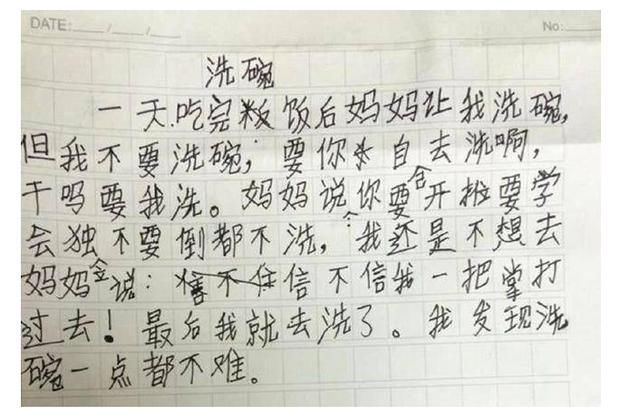 DATE: No:
洗碗
一天吃完饭后妈妈让我洗碗,
但我不要洗碗,要你自去洗啊,
干吗要我洗。妈妈说你要合开始要学
会独不要倒都不洗,我还是不想去
妈妈说:信不信我一把掌打
过去!最后我就去洗了。我发现洗
碗一点都不难。